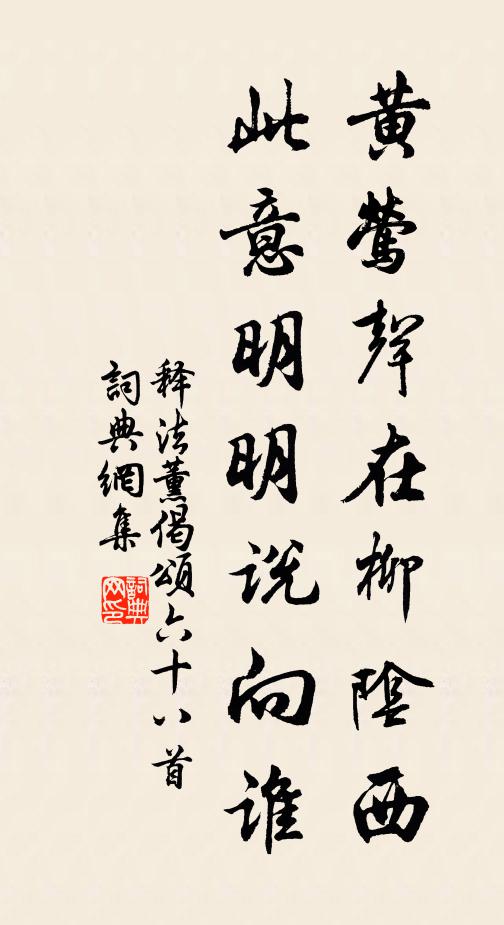 黄莺聲在柳陰西
此意明明说向谁
释法薰偈頌六十八首
詞典網集
詞典网印